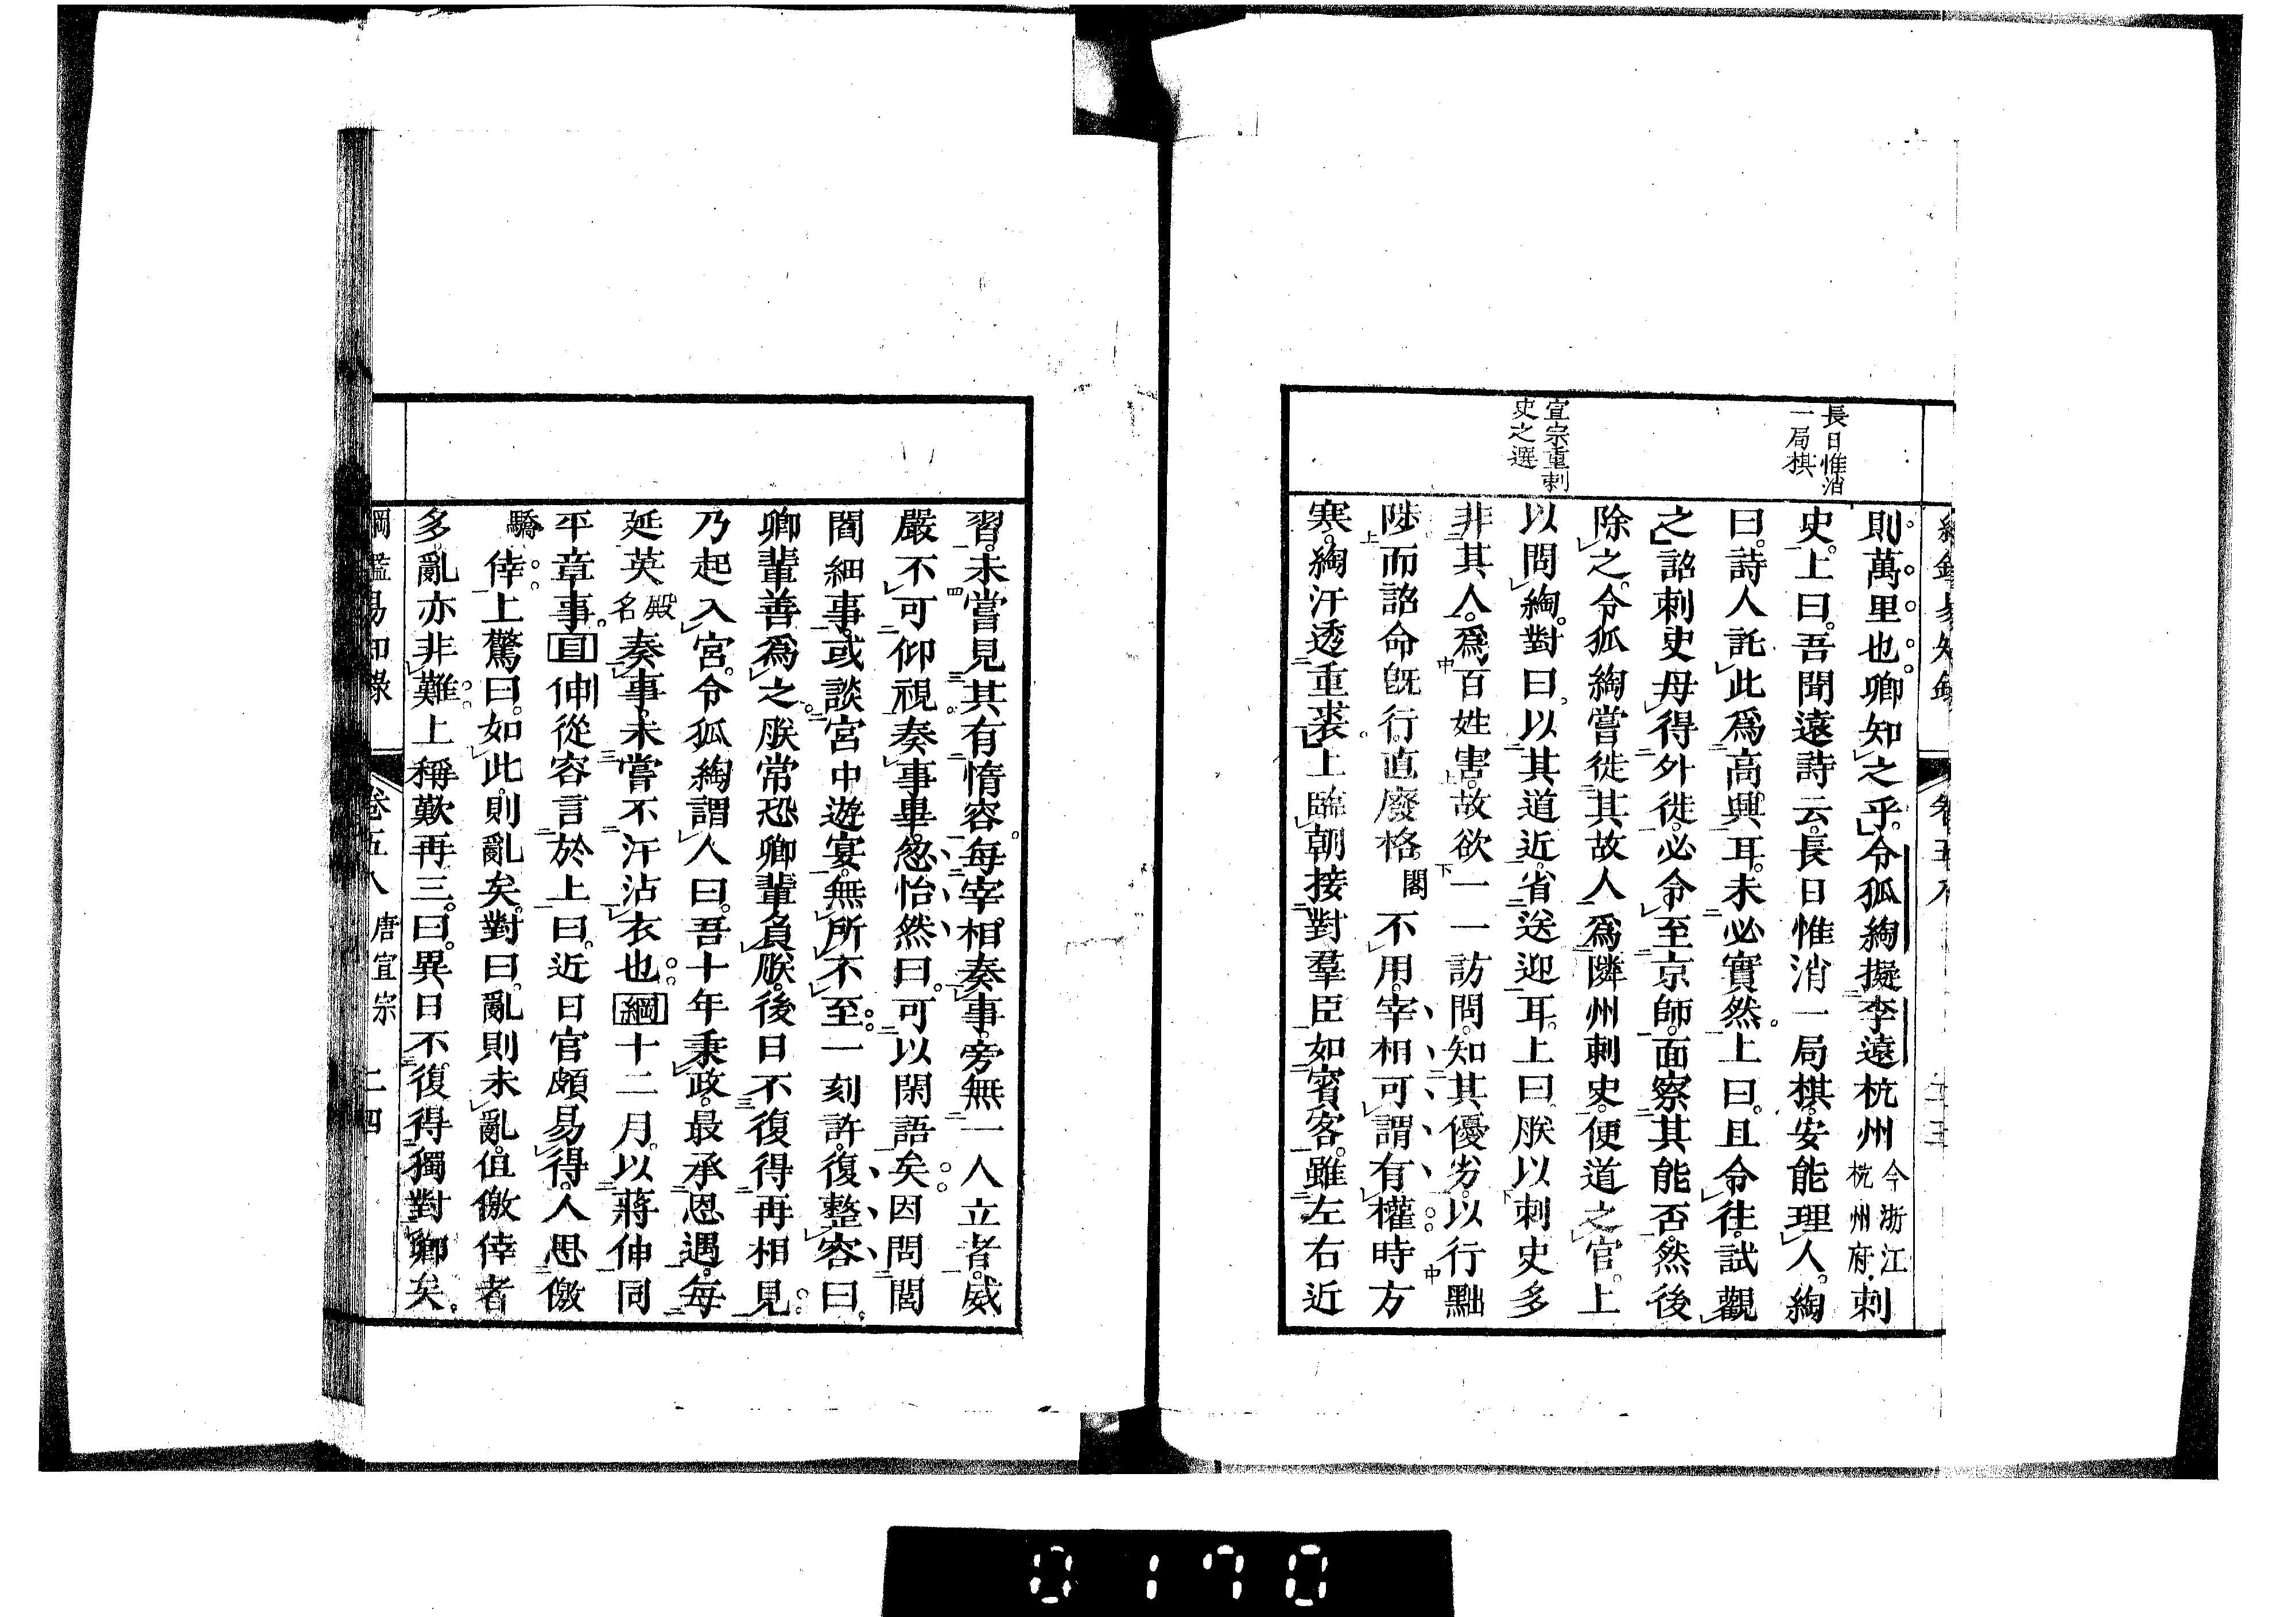 綱鑑易知錄 卷五八 二三
長日惟消
一局棋
宣宗重刺
史之選
則萬里也卿知之乎令狐綯擬李遠杭州今浙江杭州府刺
史上曰吾聞遠詩云長日惟消一局棋安能理人綯
曰詩人託此爲高興耳未必實然上曰且令往試觀
之詔刺史毋得外徙必令至京師面察其能否然後
除之令狐綯嘗徙其故人爲隣州刺史便道之官上
以問綯對曰以其道近省送迎耳上曰朕以刺史多
非其人爲百姓害故欲一一訪問知其優劣以行黜
陟而詔命旣行直廢格閣不用宰相可謂有權時方
寒綯汗透重裘上臨朝接對羣臣如賓客雖左右近
習未嘗見其有惰容每宰相奏事旁無一人立者威
嚴不可仰視奏事畢忽怡然曰可以閑語矣因問閭
閻細事或談宮中遊宴無所不至一刻許復整容曰
卿輩善爲之朕常恐卿輩負朕後日不復得再相見
乃起入宮令狐綯謂人曰吾十年秉政最承恩遇每
延英殿名奏事未嘗不汗沾衣也綱十二月以蔣伸同
平章事目伸從容言於上曰近日官頗易得人思儌
驕倖上驚曰如此則亂矣對曰亂則未亂但儌倖者
多亂亦非難上稱歎再三曰異日不復得獨對卿矣
綱鑑易知錄 卷五八 唐宣宗 二四
0170